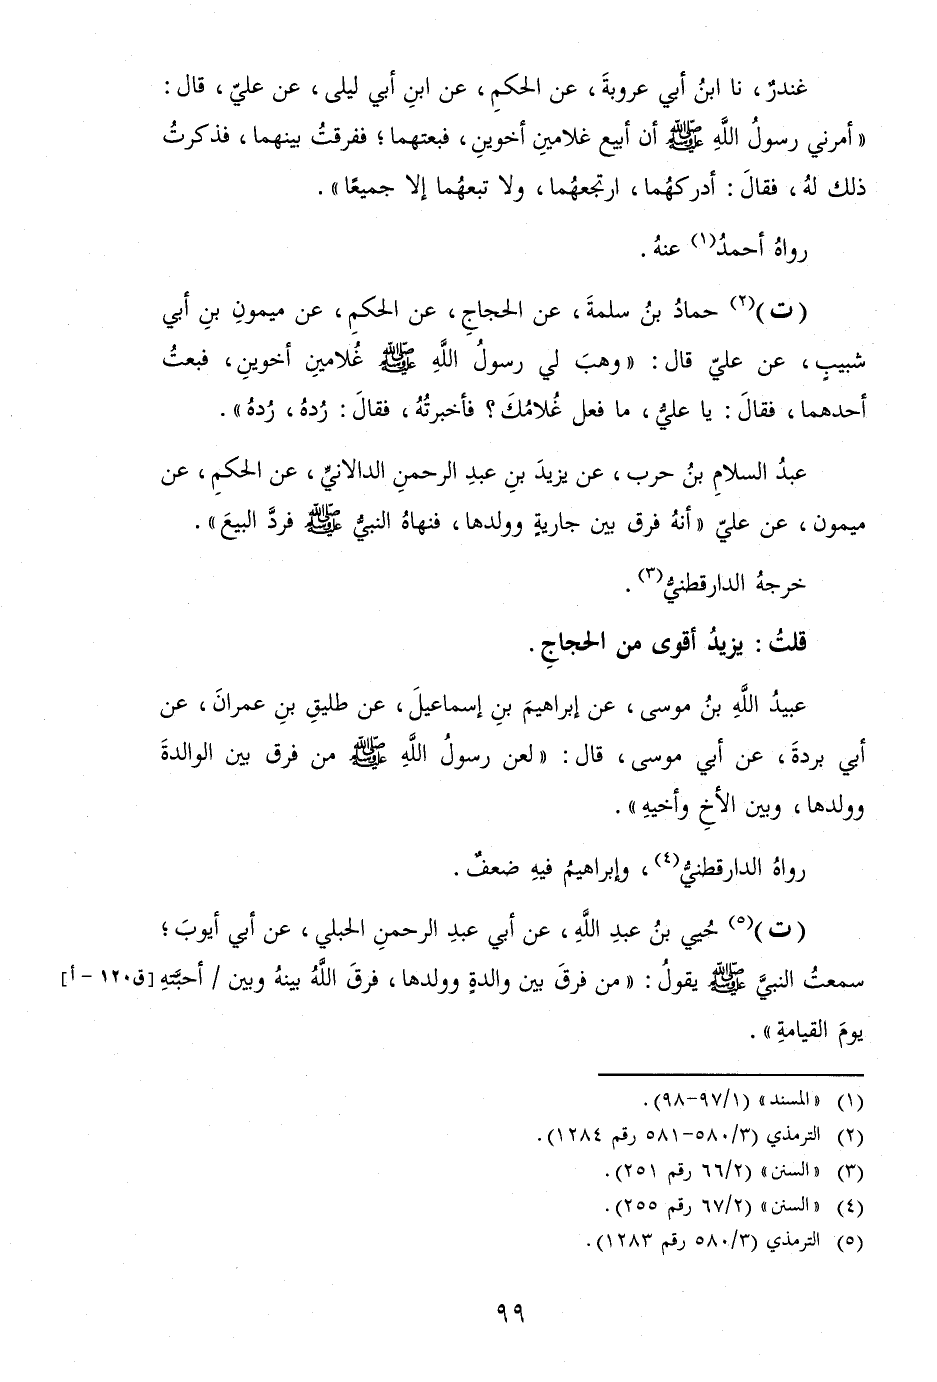 غندرٌ، نا ابنُ أبي عروبةَ، عن الحكمِ، عن ابنِ أبي ليلى، عن عليّ، قال:
«أمرني رسولُ اللَّهِ ﷺ أن أبيع غلامينِ أخوينِ، فبعتهما؛ ففرقتُ بينهما، فذكرتُ
ذلك لهُ، فقالَ: أدركهُما، ارتجعهُما، ولا تبعهُما إلا جميعًا».
رواهُ أحمدُ(١) عنهُ.
(ت)(٢) حمادُ بنُ سلمةَ، عن الحجاجِ، عن الحكمِ، عن ميمونِ بنِ أبي
شبيبٍ، عن عليّ قال: «وهبَ لي رسولُ اللَّهِ ﷺ غُلامينِ أخوينِ، فبعتُ
أحدهما، فقالَ: يا عليُّ، ما فعل غُلامُكَ؟ فأخبرتُهُ، فقالَ: رُدهُ، رُدهُ».
عبدُ السلامِ بنُ حرب، عن يزيدَ بنِ عبدِ الرحمنِ الدالانيِّ، عن الحكمِ، عن
ميمون، عن عليّ «أنهُ فرق بين جاريةٍ وولدها، فنهاهُ النبيُّ ﷺ فردَّ البيعَ».
خرجهُ الدارقطنيُّ(٣).
قلتُ: يزيدُ أقوى من الحجاجِ.
عبيدُ اللَّهِ بنُ موسى، عن إبراهيمَ بنِ إسماعيلَ، عن طليقِ بنِ عمرانَ، عن
أبي بردةَ، عن أبي موسى، قال: «لعن رسولُ اللَّهِ ﷺ من فرق بين الوالدةَ
وولدها، وبين الأخِ وأخيهِ».
رواهُ الدارقطنيُّ(٤)، وإبراهيمُ فيهِ ضعفٌ.
(ت)(٥) حُيي بنُ عبدِ اللَّهِ، عن أبي عبدِ الرحمنِ الحبلي، عن أبي أيوبَ؛
سمعتُ النبيَّ ﷺ يقولُ: «من فرقَ بين والدةٍ وولدها، فرقَ اللَّهُ بينهُ وبين / أحبَّتهِ [ق١٢٠ - أ]
يومَ القيامةِ».
(١) «المسند» (١/٩٧-٩٨).
(٢) الترمذي (٣/٥٨٠-٥٨١ رقم ١٢٨٤).
(٣) «السنن» (٢/٦٦ رقم ٢٥١).
(٤) «السنن» (٢/٦٧ رقم ٢٥٥).
(٥) الترمذي (٣/٥٨٠ رقم ١٢٨٣).
٩٩